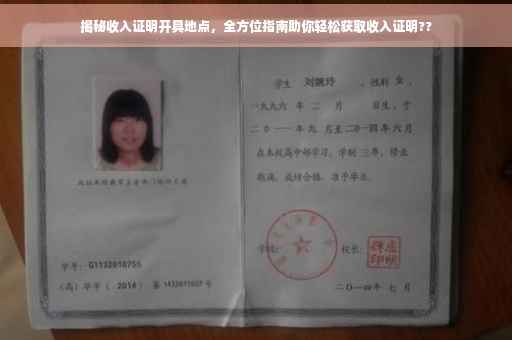 揭秘收入证明开具地点，全方位指南助你轻松获取收入证明??
学生 刘婉玲 ，性别 女 ，
一九九六 年 二 月 日生，于
二〇一一年九月至二〇一四年六月
在本校高中部学习，学制 三年，修业
期满，成绩合格，准予毕业。
学校: 校长:
学号: G1132010755
(高) 毕字 ( 2014 ) 第 1432011027 号
二〇一四年 七 月